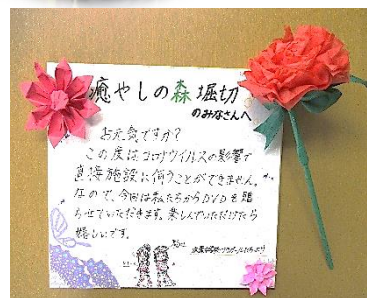 癒やしの森 堀切
のみなさんへ
お元気ですか?
この度はコロナウイルスの影響で
直接施設に伺うことができません。
なので、今回は私たちからDVDを贈
らせていただきます。楽しんでいただけたら
嬉しいです。